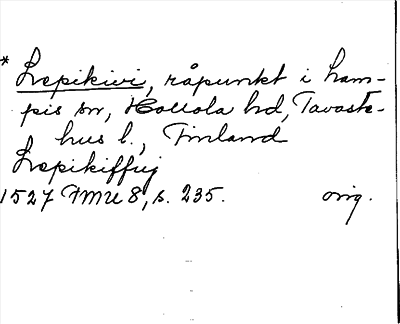 * Lepikivi, råpunkt i Lam-
pis sn, Hollola hd, Tavaste-
hus l., Finland
Lepikiffuj
1527 FMU 8, s. 235. orig.